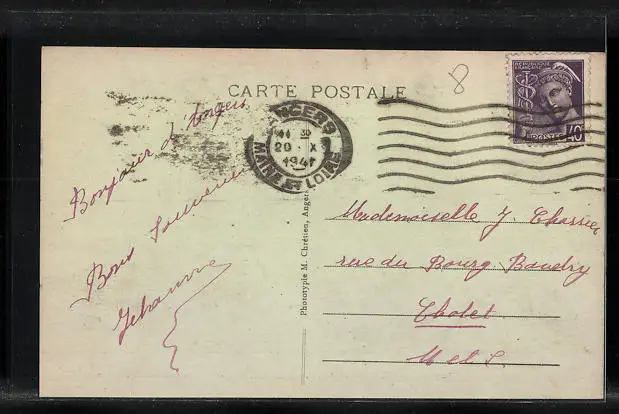 CARTE POSTALE
8
RÉPUBLIQUE FRANÇAISE
POSTES
40
ANGERS
20 X
1941
MAINE ET LOIRE
Bonjour d'Angers
Bons Souvenirs
Mademoiselle J.
rue du Bourg Baudry
Cholet
M et L.
Phototypie M. Chrétien, Angers